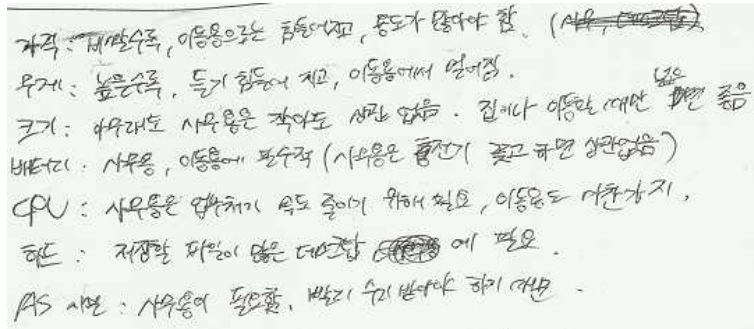 가격 : 비쌀수록, 이동용으로는 힘들어지고, 용도가 많아야 함. (사무,
무게 : 높을수록, 들기 힘들어 지고, 이동용에서 멀어짐.
크기 : 아무래도 사무용은 작아도 상관 없음. 집이나 이동할 때만 넓은 좋음
배터리 : 사무용, 이동용에 필수적 (사무용은 충전기 꽂고 하면 상관없음)
CPU : 사무용은 업무처리 속도 줄이기 위해 필요, 이동용도 마찬가지.
하드 : 저장할 파일이 많은 데스크탑에 필요.
AS 지원 : 사무용이 필요함. 빨리 수리 받아야 하기 때문.